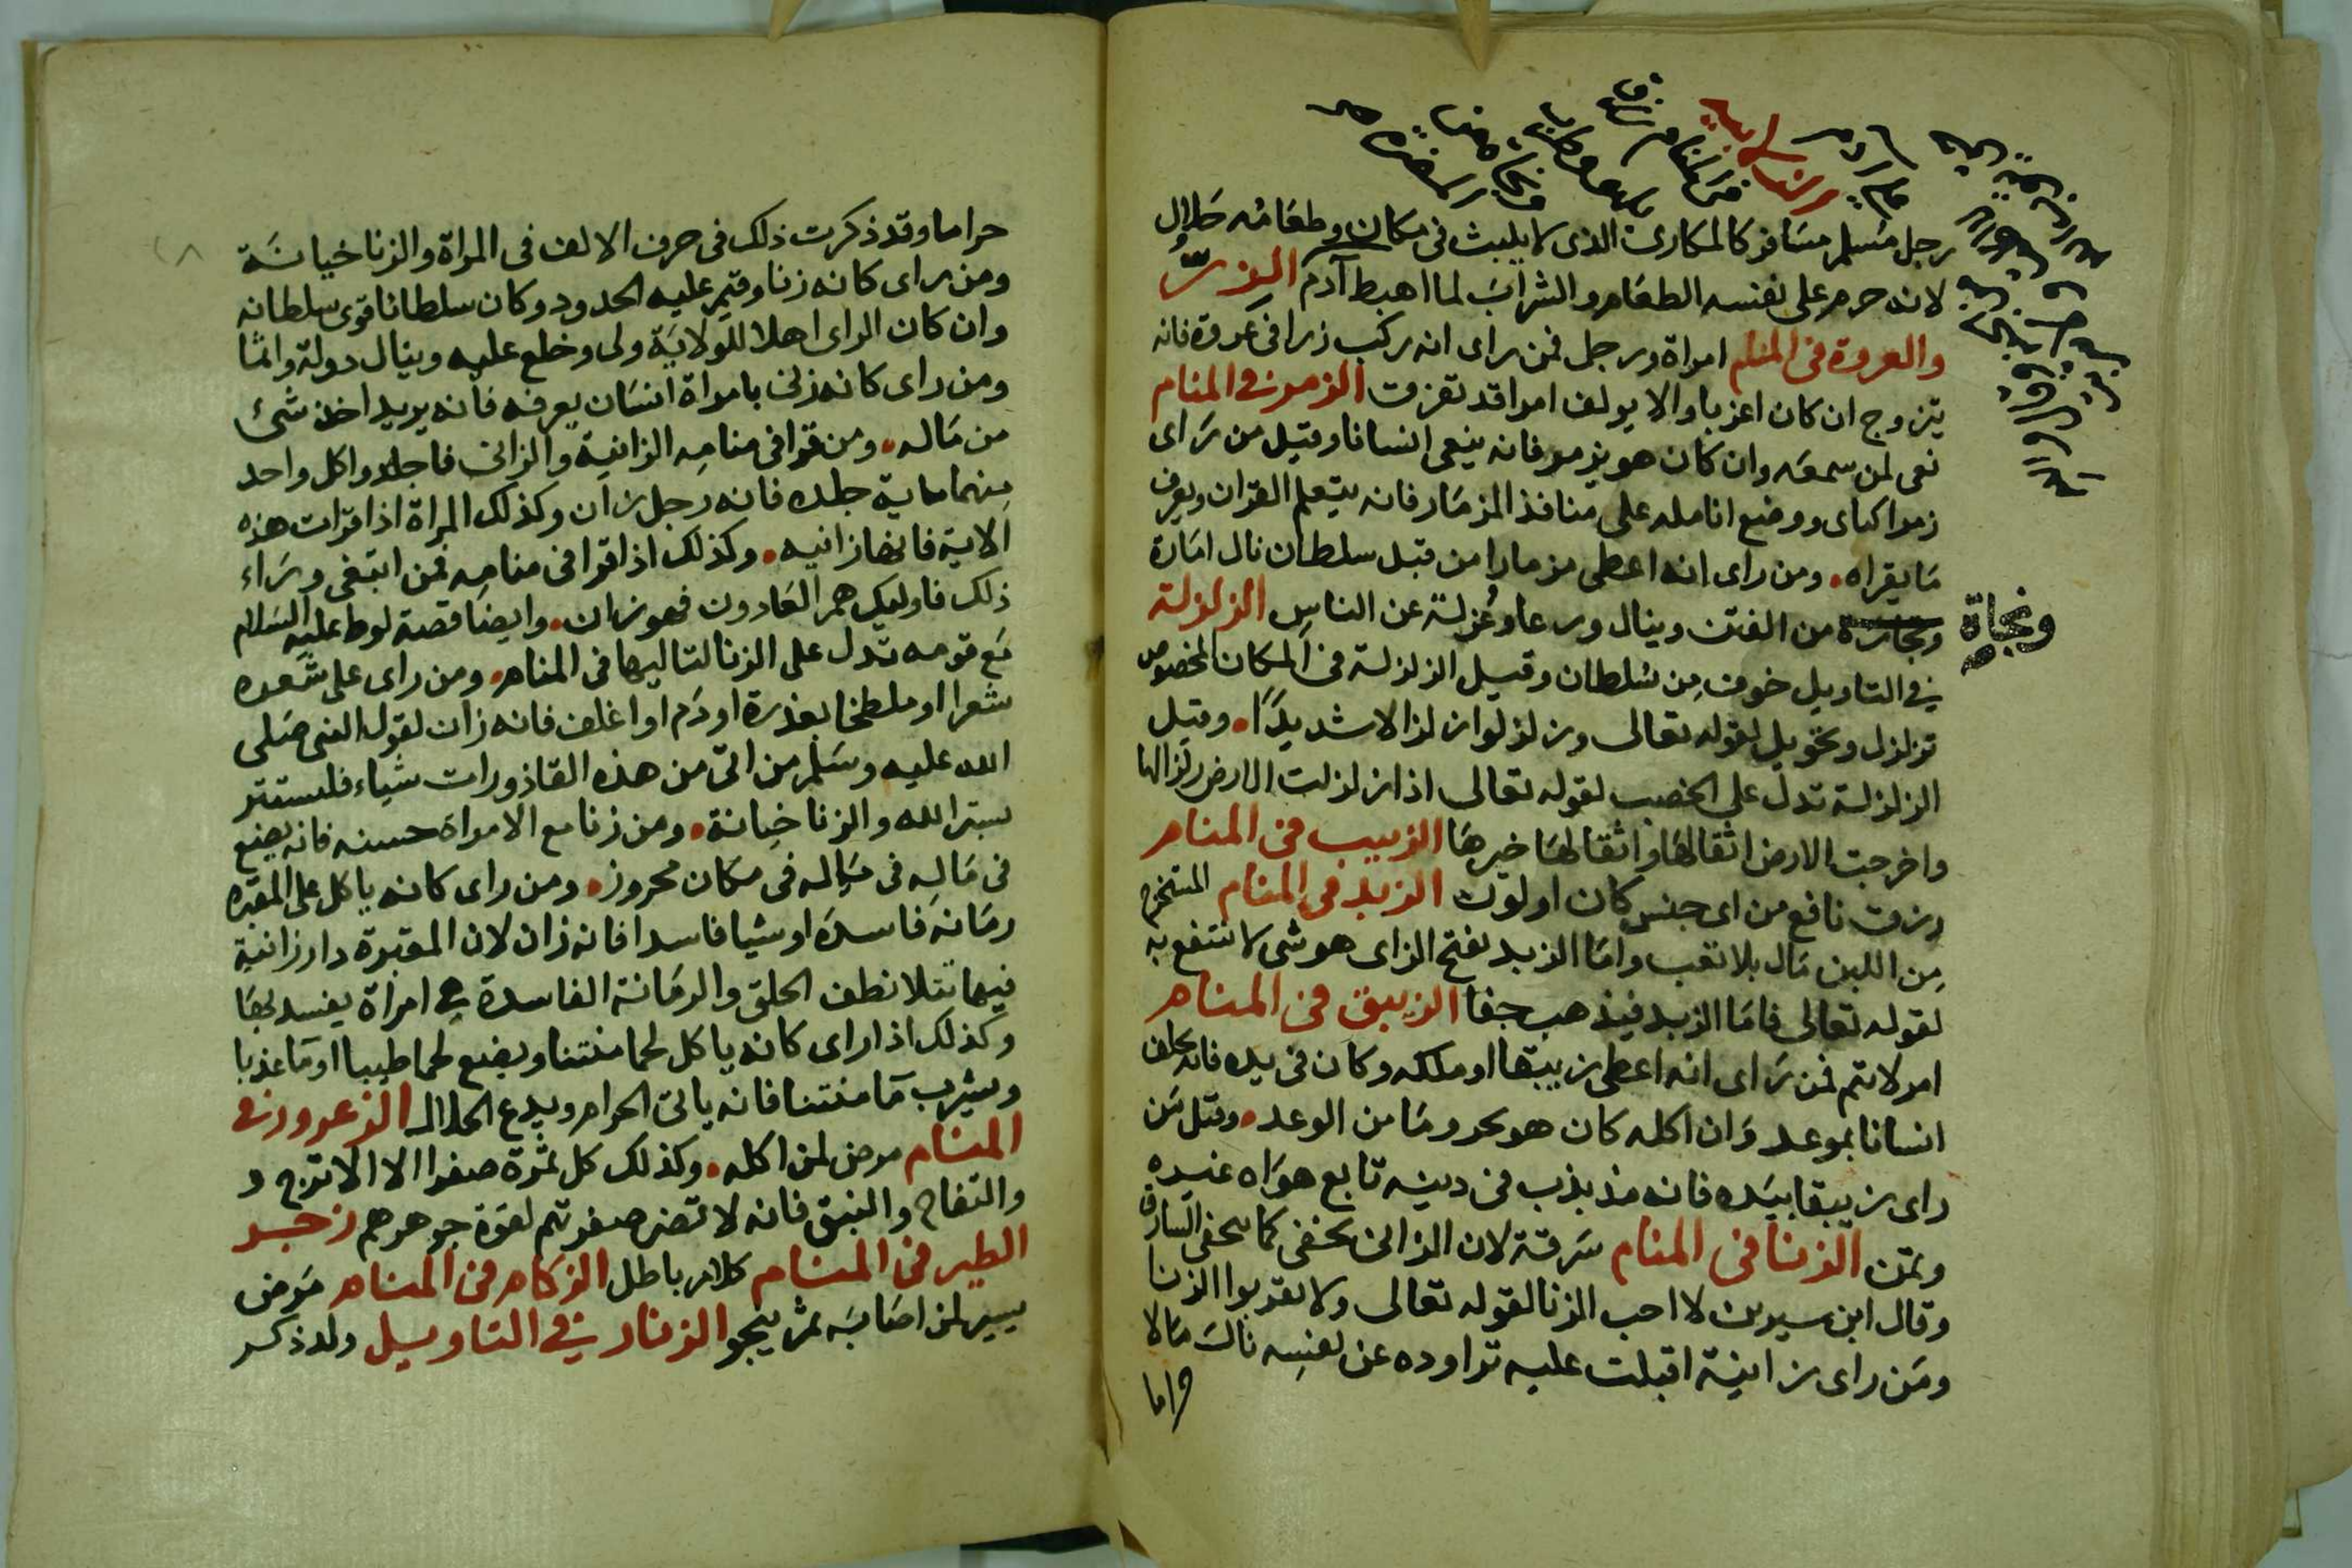 رجل مسلم مسافر كالمكارى الذى لا يلبث فى مكان وطعامه حلال
لانه حرم على نفسه الطعام والشراب لما اهبط آدم الزر
والعروة فى المنام امراة ورجل فمن راى انه ركب زرا فى عروة فانه
يتزوج ان كان اعزبا والا يولف امرا قد تفرق الزمر فى المنام
نعى لمن سمعه وان كان هو يزمر فانه ينعى انسانا وقيل من راى
ووضع انامله على منافذ المزمار فانه يتعلم القران ويعرف
ما يقراه ومن راى انه اعطى مزمارا من قبل سلطان نال امارة
من الفتن وينال ورعا وعزلة عن الناس الزلزلة
ونجاة
فى التاويل خوف من سلطان وقيل الزلزلة فى المكان المخصوص
تزلزل وتحويل لقوله تعالى وزلزلوا زلزالا شديدا وقيل
الزلزلة تدل على الخصب لقوله تعالى اذا زلزلت الارض زلزالها
واخرجت الارض اثقالها واثقالها خيرها الزبيب فى المنام
رزق نافع من اى جنس كان او لون الزبد فى المنام المستخرج
من اللبن مال بلا تعب واما الزبد بفتح الزاى هو شى لا ينتفع به
لقوله تعالى فاما الزبد فيذهب جفا الزيبق فى المنام
امر لا يتم فمن راى انه اعطى زيبقا او ملكه وكان فى يده فانه يخلف
انسانا بموعد وان اكله كان هو محروما من الوعد وقيل من
راى زيبقا بيده فانه مذبذب فى دينه تابع هواه عنده
الزنا فى المنام سرقة لان الزانى يختفى كما يختفى السارق
وقال ابن سيرين لا احب الزنا لقوله تعالى ولا تقربوا الزنا
ومن راى زانية اقبلت عليه تراوده عن نفسه نال مالا
حراما
حراما وقد ذكرت ذلك فى حرف الالف فى المراة والزنا خيانة
ومن راى كانه زنا وقيم عليه الحدود وكان سلطانا قوى سلطانه
وان كان الراى اهلا للولاية ولى وخلع عليه وينال دولة وانما
ومن راى كانه زنى بامراة انسان يعرفه فانه يريد اخذ شئ
من ماله ومن قرا فى منامه الزانية والزانى فاجلدوا كل واحد
منهما ماية جلده فانه رجل زان وكذلك المراة اذا قرات هذه
الاية فانها زانيه وكذلك اذا قرا فى منامه فمن ابتغى وراء
ذلك فاوليك هم العادون فهو زان وايضا قصة لوط عليه السلام
مع قومه تدل على الزنا لتاليها فى المنام ومن راى على شعره
شعرا او ملطخا بعذرة او دم او اغلف فانه زان لقول النبى صلى
الله عليه وسلم من اتى من هذه القاذورات شياء فليستتر
بستر الله والزنا خيانة ومن زنا مع الامراة حسنه فانه يضع
فى ماله فى مكان محروز ومن راى كانه ياكل على المقبره
رمانة فاسدة او شيا فاسدا فانه زان لان المقبرة دار زانية
فيها نطف الخلق والرمانة الفاسدة هى امراة يفسد بها
وكذلك اذا راى كانه ياكل لحما منتنا ويضع لحما طيبا او ما عذبا
ويشرب ما منتنا فانه ياتى الحرام ويدع الحلال الزعرور فى
المنام مرض لمن اكله وكذلك كل ثمرة صفرا الا الاترج و
والتفاح والنبق فانه لا تضر صفرتهم لقوة جوهرهم زجر
الطير فى المنام كلام باطل الزكام فى المنام مرض
يسير لمن اصابه ثم ينجو الزنار فى التاويل ولد ذكر